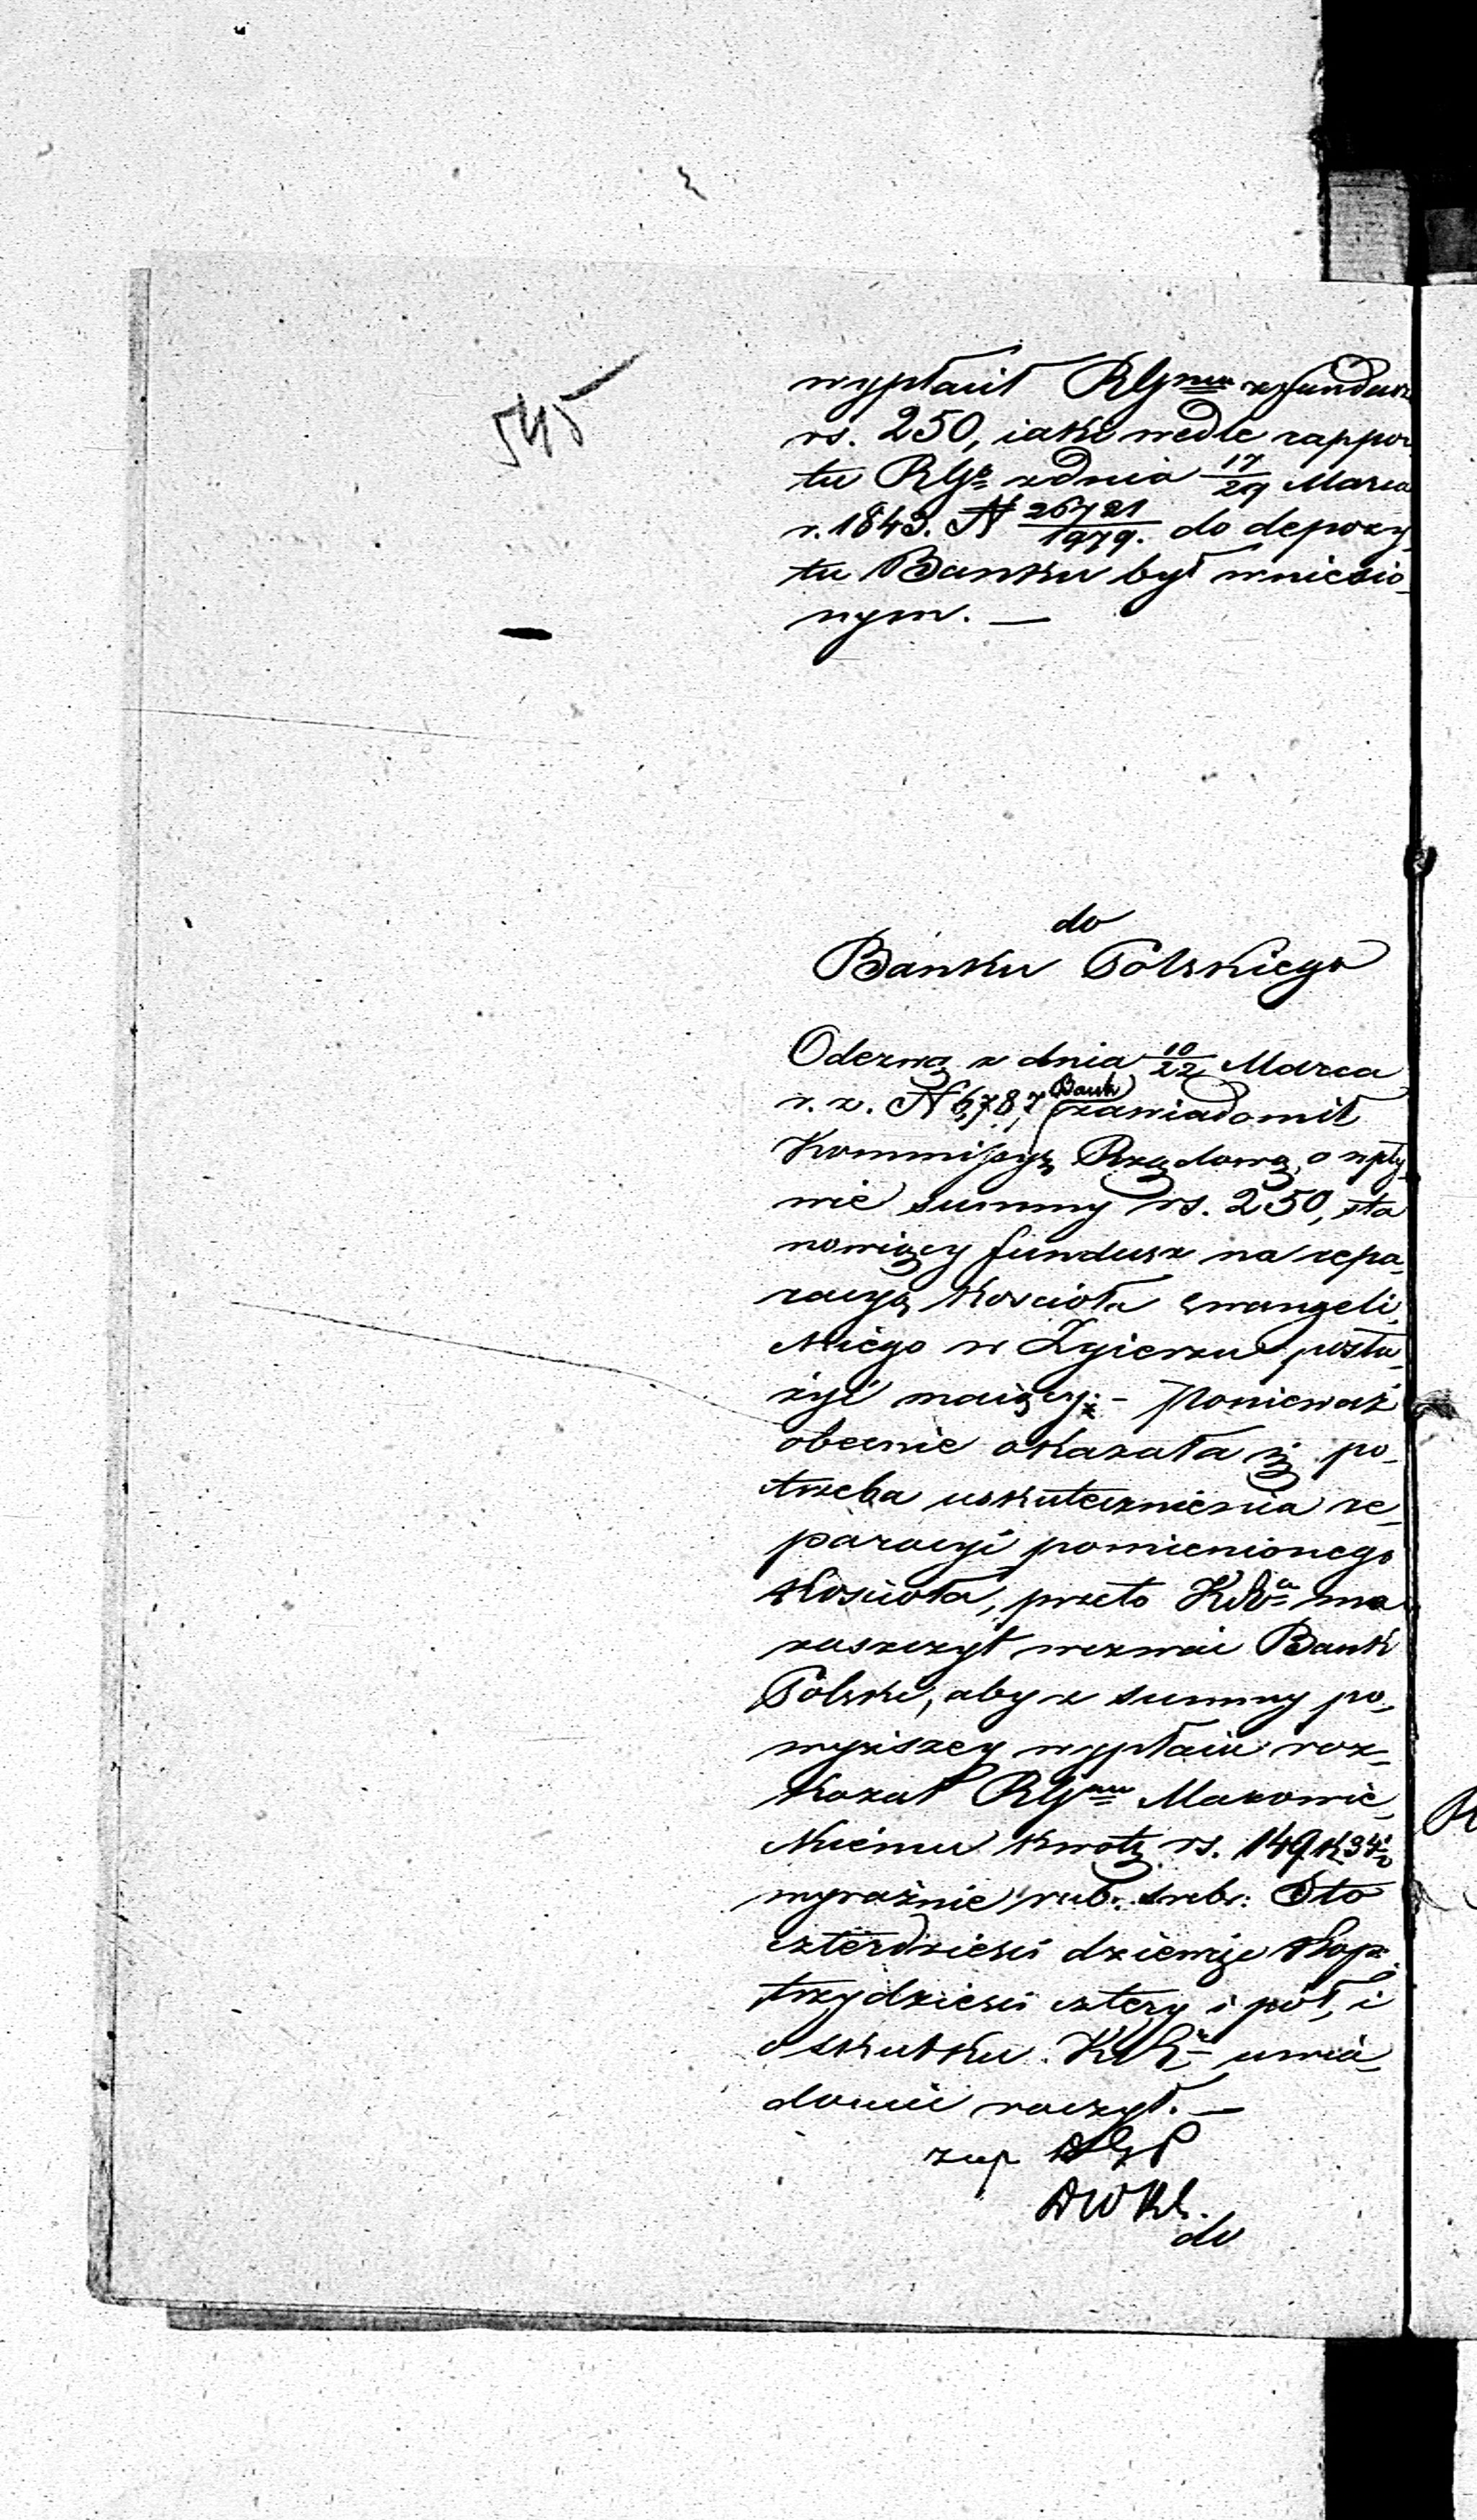 545
wypłacił RGmu z fundusz
rs. 250, iaki wedle rappor
tu RGo z dnia 17/29 Marca
r. 1843. N 26721/1979. do depozy,
tu Banku był wniesio_
nym. —
do
Banku Polskiego
Odezwą z dnia 10/22 Marca
r. z. N 6,787, Bank zawiadomił
Kommissyę Rządową, o wpły,
wie summy rs. 250, sta
nowiący fundusz na repa,
racyą Kościoła Ewangeli,
ckiego w Zgierzu posłu,
żyć maiący. - Ponieważ
obecnie okazała się po_
trzeba uskutecznienia re_
paracyi pomienionego
Kościoła, przeto KRa ma
zaszczyt wezwać Bank
Polski, aby z summy po,
wyższey wypłacić roz_
kazał RGmu Mazowie,
ckiemu kwotę rs. 149 k 34 1/2
wyraźnie rub. srebr: Sto
czterdzieści dziewięć kop.
trzydzieści cztery i pół, i
o skutku KRę uwia,
domić raczył. —
zup DGP
DWKl.
do